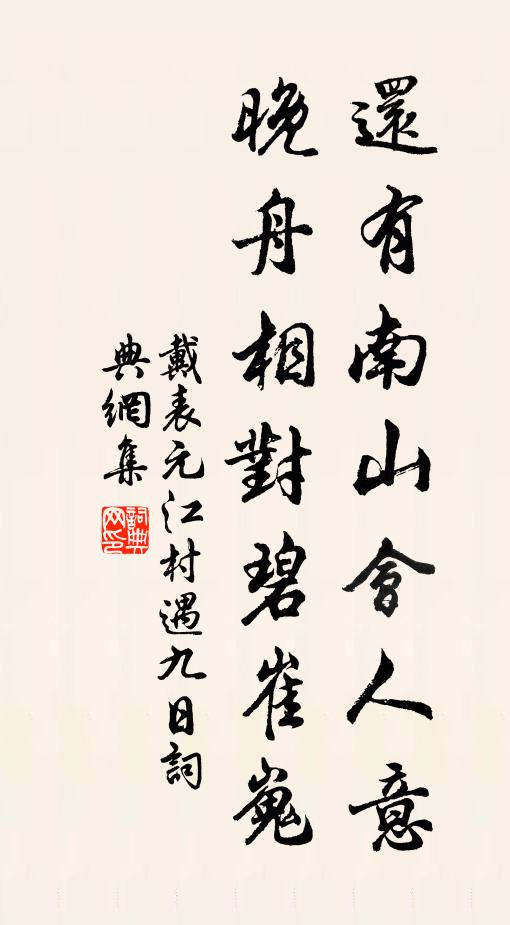 還有南山會人意
晚舟相對碧崔嵬
戴表元江村遇九日詞
典網集
詞典網印